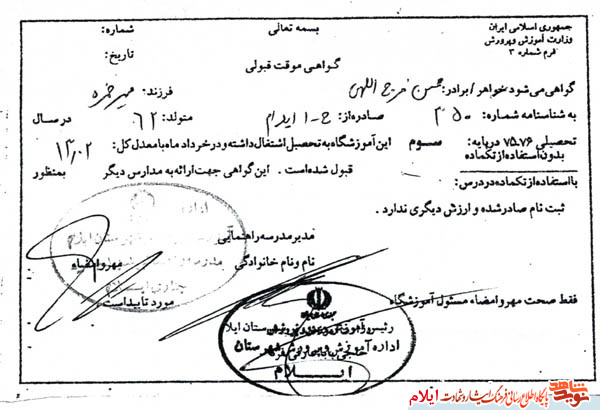 جمهوری اسلامی ایران
وزارت آموزش و پرورش
فرم شماره ۳
بسمه تعالی
شماره:
تاریخ:
گواهی موقت قبولی
گواهی می‌شود خواهر / برادر: حسن فرج اللهی فرزند:
به شناسنامه شماره: ۳۵۰ صادره از: ح-۱ ایلام متولد: ۶۲ در سال
تحصیلی ۷۵.۷۶ در پایه: سوم این آموزشگاه به تحصیل اشتغال داشته و در خرداد ماه با معدل کل: ۱۳/۰۲
بدون استفاده از تکماده
با استفاده از تکماده در درس: قبول شده است . این گواهی جهت ارائه به مدارس دیگر بمنظور
ثبت نام صادر شده و ارزش دیگری ندارد .
مدیر مدرسه راهنمایی
نام و نام خانوادگی مهر و امضاء
فقط صحت مهر و امضاء مسئول آموزشگاه مورد تایید است
اداره آموزش و پرورش شهرستان
ایلام
نوید شاهد پایگاه اطلاع رسانی فرهنگ ایثار و شهادت ایلام